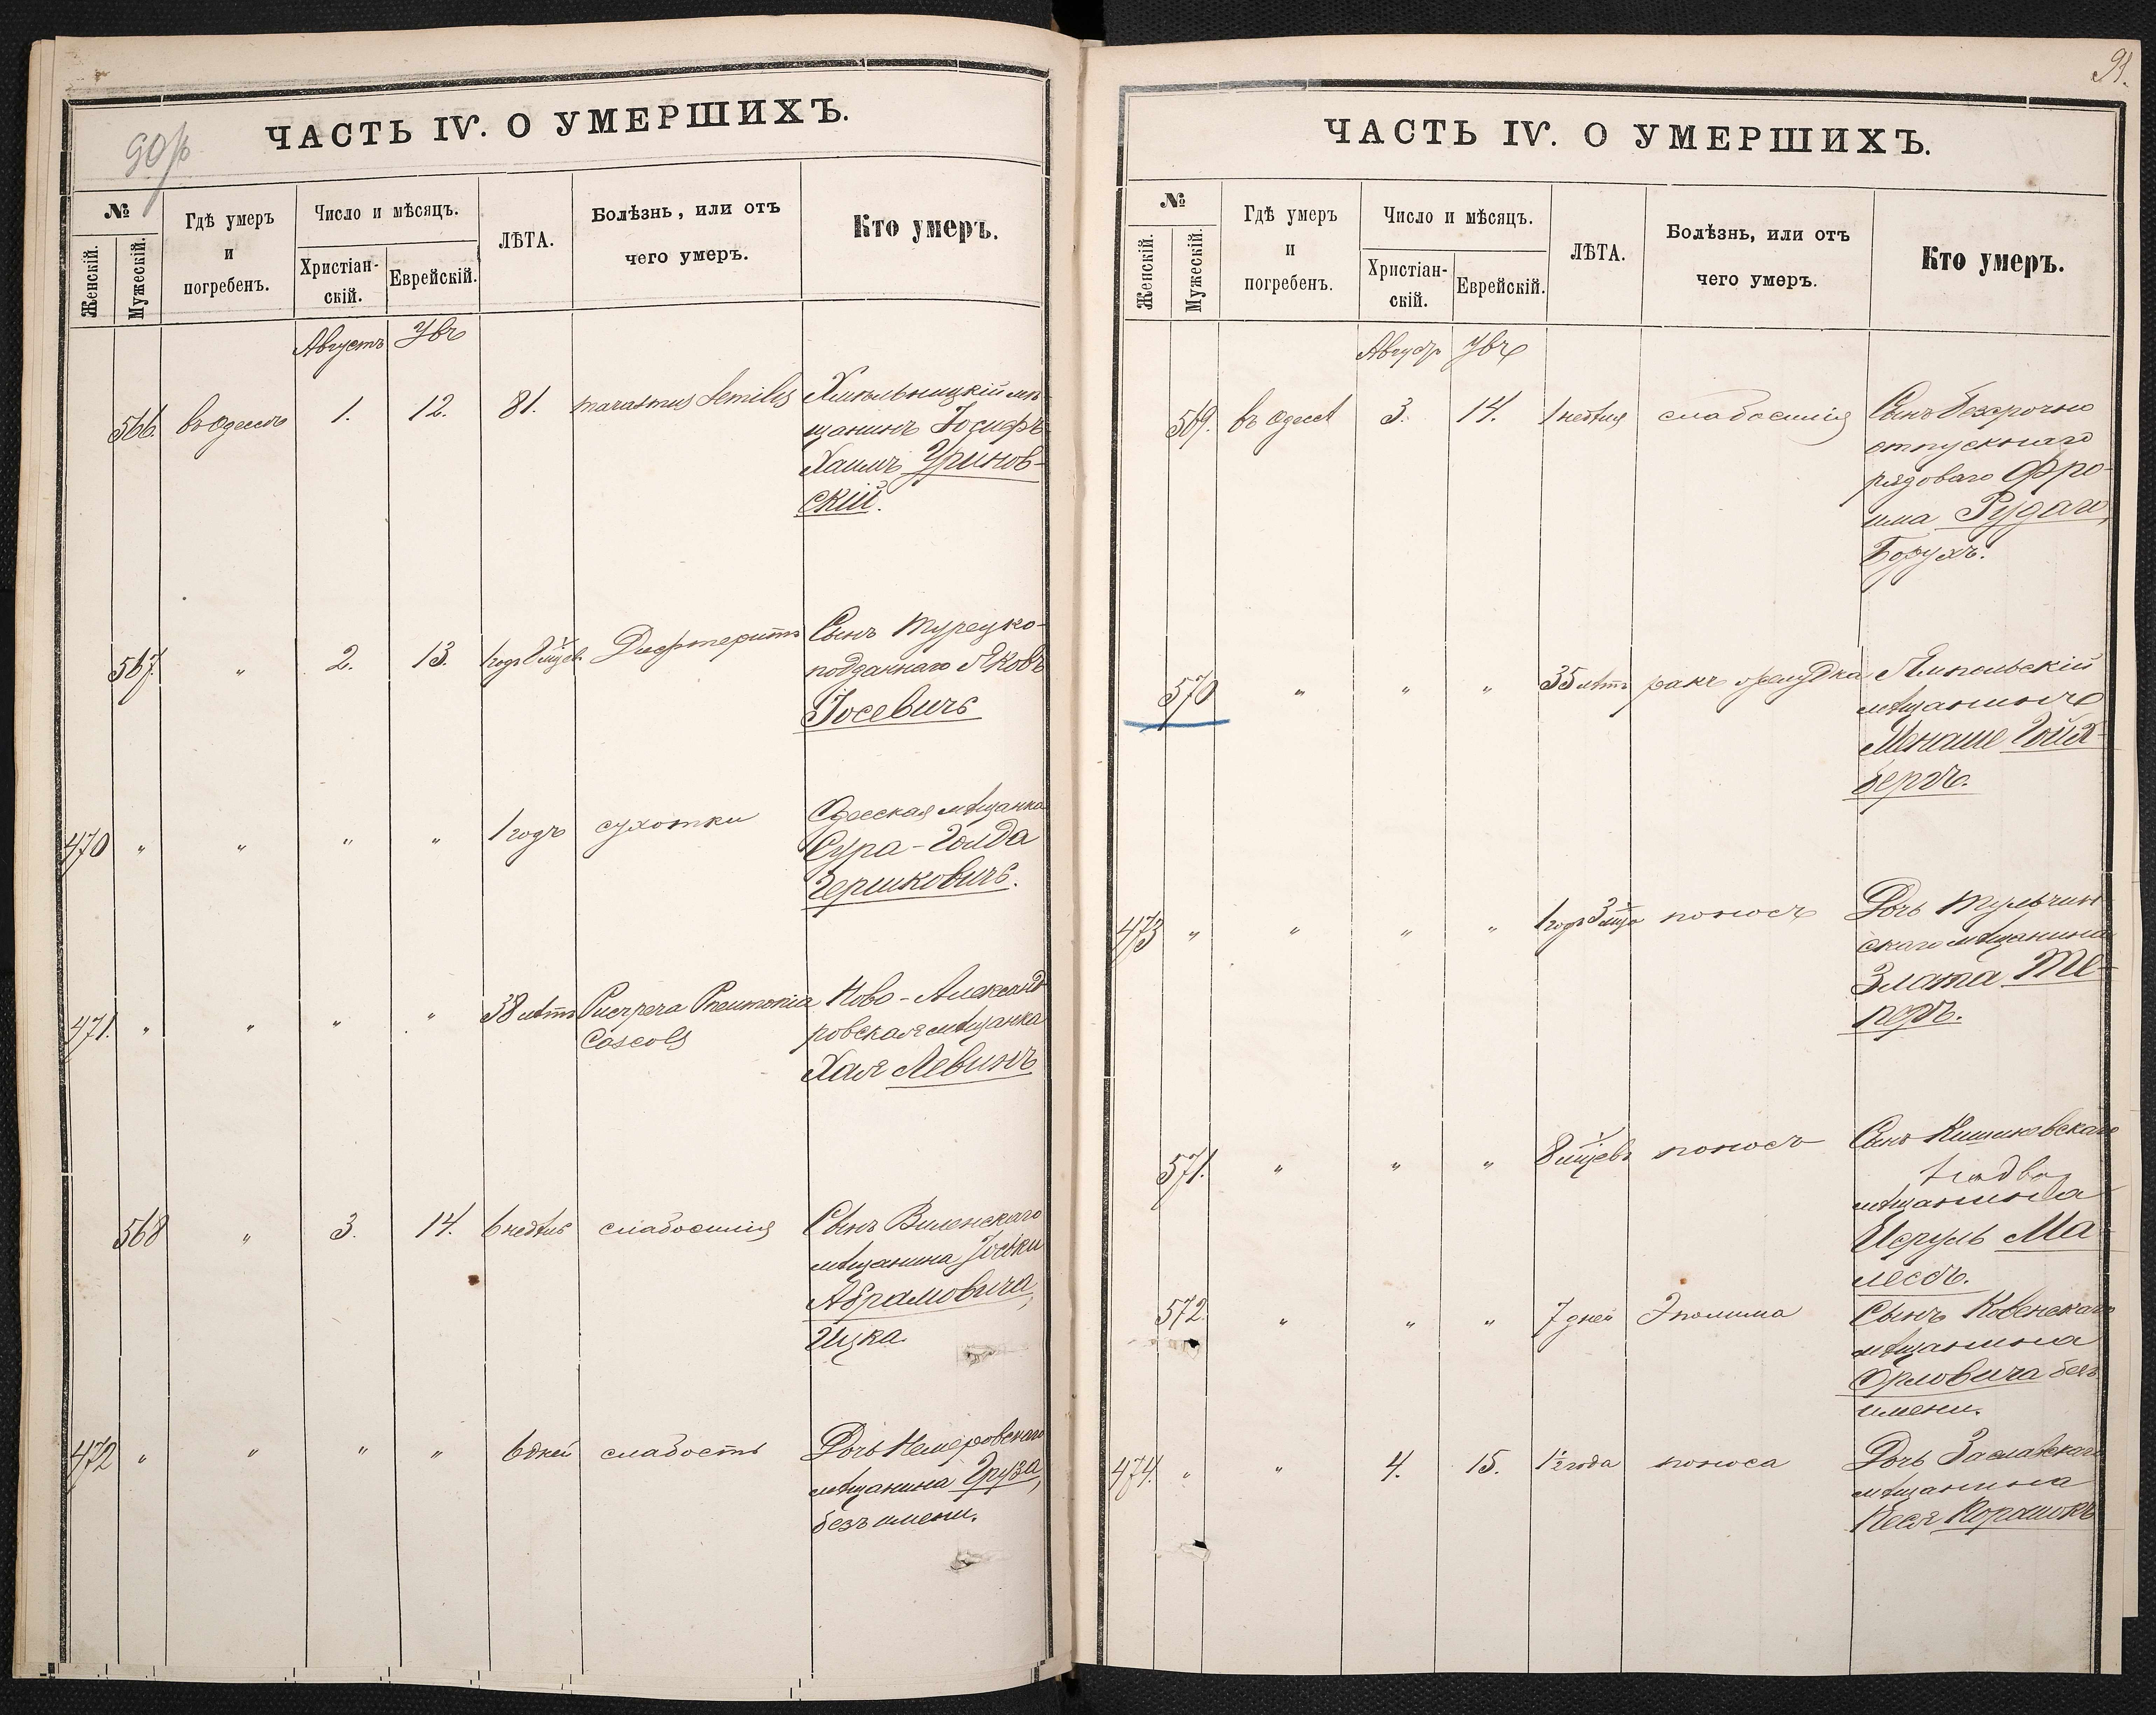 90 об
ЧАСТЬ IV. О УМЕРШИХЪ.
№
Женскій.
Мужескій.
Гдѣ умеръ
и
погребенъ.
Число и мѣсяцъ.
Христіан-
скій.
Еврейскій.
ЛѢТА.
Болѣзнь, или отъ
чего умеръ.
Кто умеръ.
Августъ
566. въ Одессѣ 1. 12. 81. marasmus Senilis Хмѣльницкій мѣ-
щанинъ Іосифъ
Хаимъ Уринов-
скій.
567. " 2. 13. 1 годъ 8 мцев. Дифтеритъ Сынъ Турецко-
подданнаго Яковъ
Іосевичъ
470 " " " " 1 годъ сухотки Одесская мѣщанка
Сура-Голда
Гершковичъ.
471. " " " " 38 лѣтъ Pneumonia Ново-Александ
ровская мѣщанка
Хая Левинъ
568 " 3. 14. 6 недѣль слабосилія Сынъ Виленскаго
мѣщанина Іоськи
Абрамовича,
Ицка.
472 " " " " 6 дней слабость Дочь Немировскаго
мѣщанина Груза,
безъ имени.
91.
ЧАСТЬ IV. О УМЕРШИХЪ.
№
Женскій.
Мужескій.
Гдѣ умеръ
и
погребенъ.
Число и мѣсяцъ.
Христіан-
скій.
Еврейскій.
ЛѢТА.
Болѣзнь, или отъ
чего умеръ.
Кто умеръ.
569. въ Одессѣ 3. 14. 1 недѣля слабосилія Сынъ безсрочно
отпускнаго
рядоваго Фро-
има Рудаго,
Борухъ.
570 " " " 35 лѣтъ ракъ желудка Ямпольскій
мѣщанинъ
Менаше Гойх-
бергъ.
473 " " " " 1 годъ 3 мца поносъ Дочь Тульчин
скаго мѣщанина
Злата Ме-
перъ.
571. " " " 8 мцевъ поносъ Сынъ Кишиневскаго
мѣщанина
Исруль Ма-
лесъ.
572. " " " 7 дней Сынъ Ковенскаго
мѣщанина
Орловича безъ
имени.
474. " " 4. 15. 1½ года поноса Дочь Заславскаго
мѣщанина
Песя Корошокъ